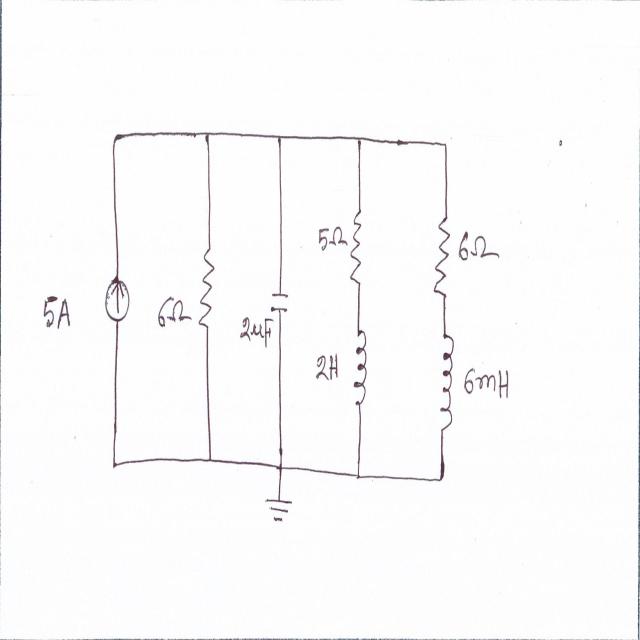 5A
6Ω
2μF
5Ω
2H
6Ω
6mH